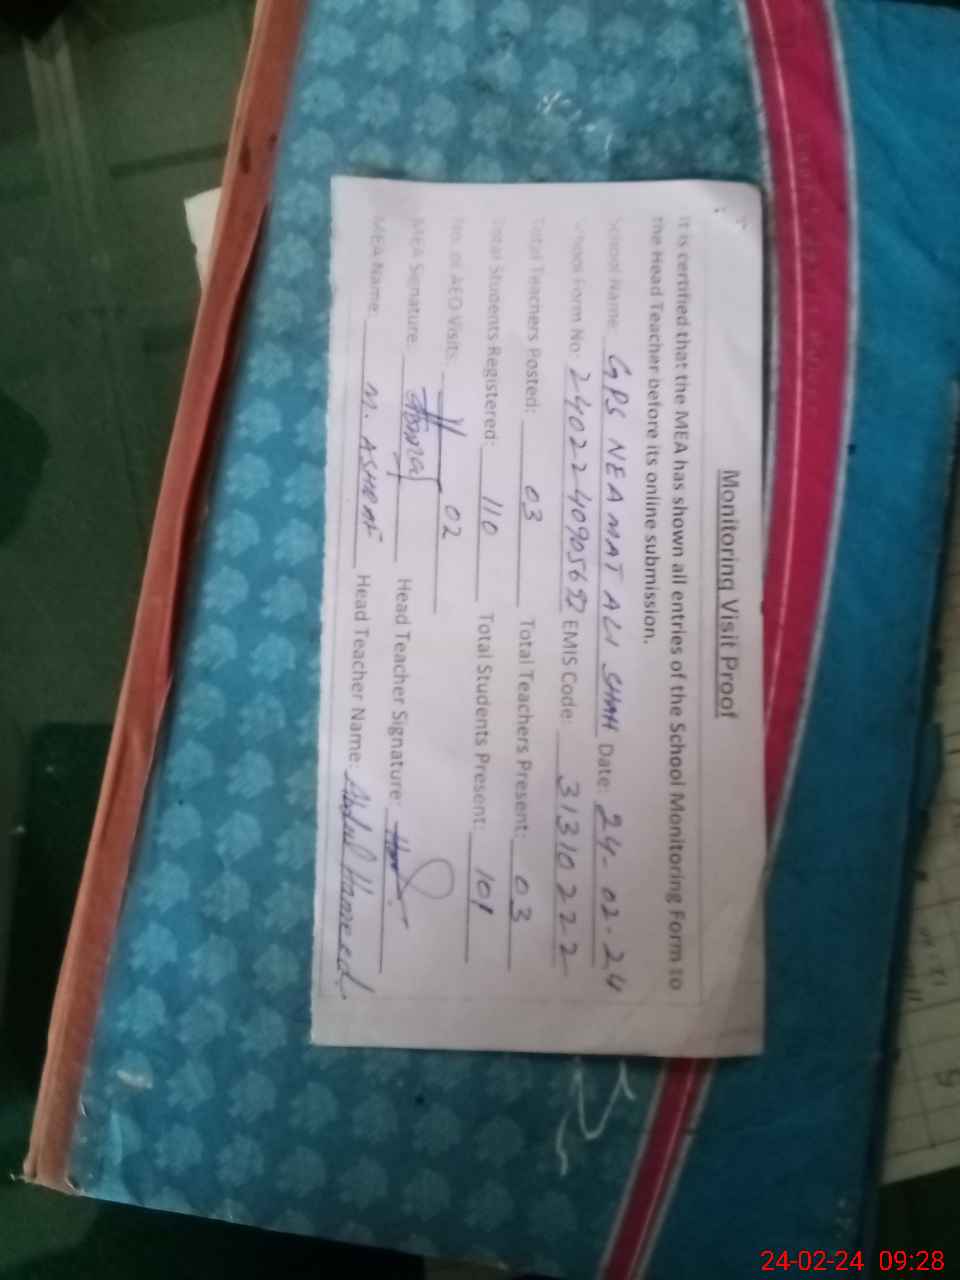 Monitoring Visit Proof
It is certified that the MEA has shown all entries of the School Monitoring Form to
the Head Teacher before its online submission.
School Name: GPS NEAMAT ALI SHAH Date: 24-02-24
School Form No: EMIS Code: 31310222
Total Teachers Posted: 03 Total Teachers Present: 03
Total Students Registered: 110 Total Students Present: 101
No. of AEO Visits: 02
MEA Signature: Head Teacher Signature:
MEA Name: M. ASHRAF Head Teacher Name: Abdul Hameed
24-02-24 09:28